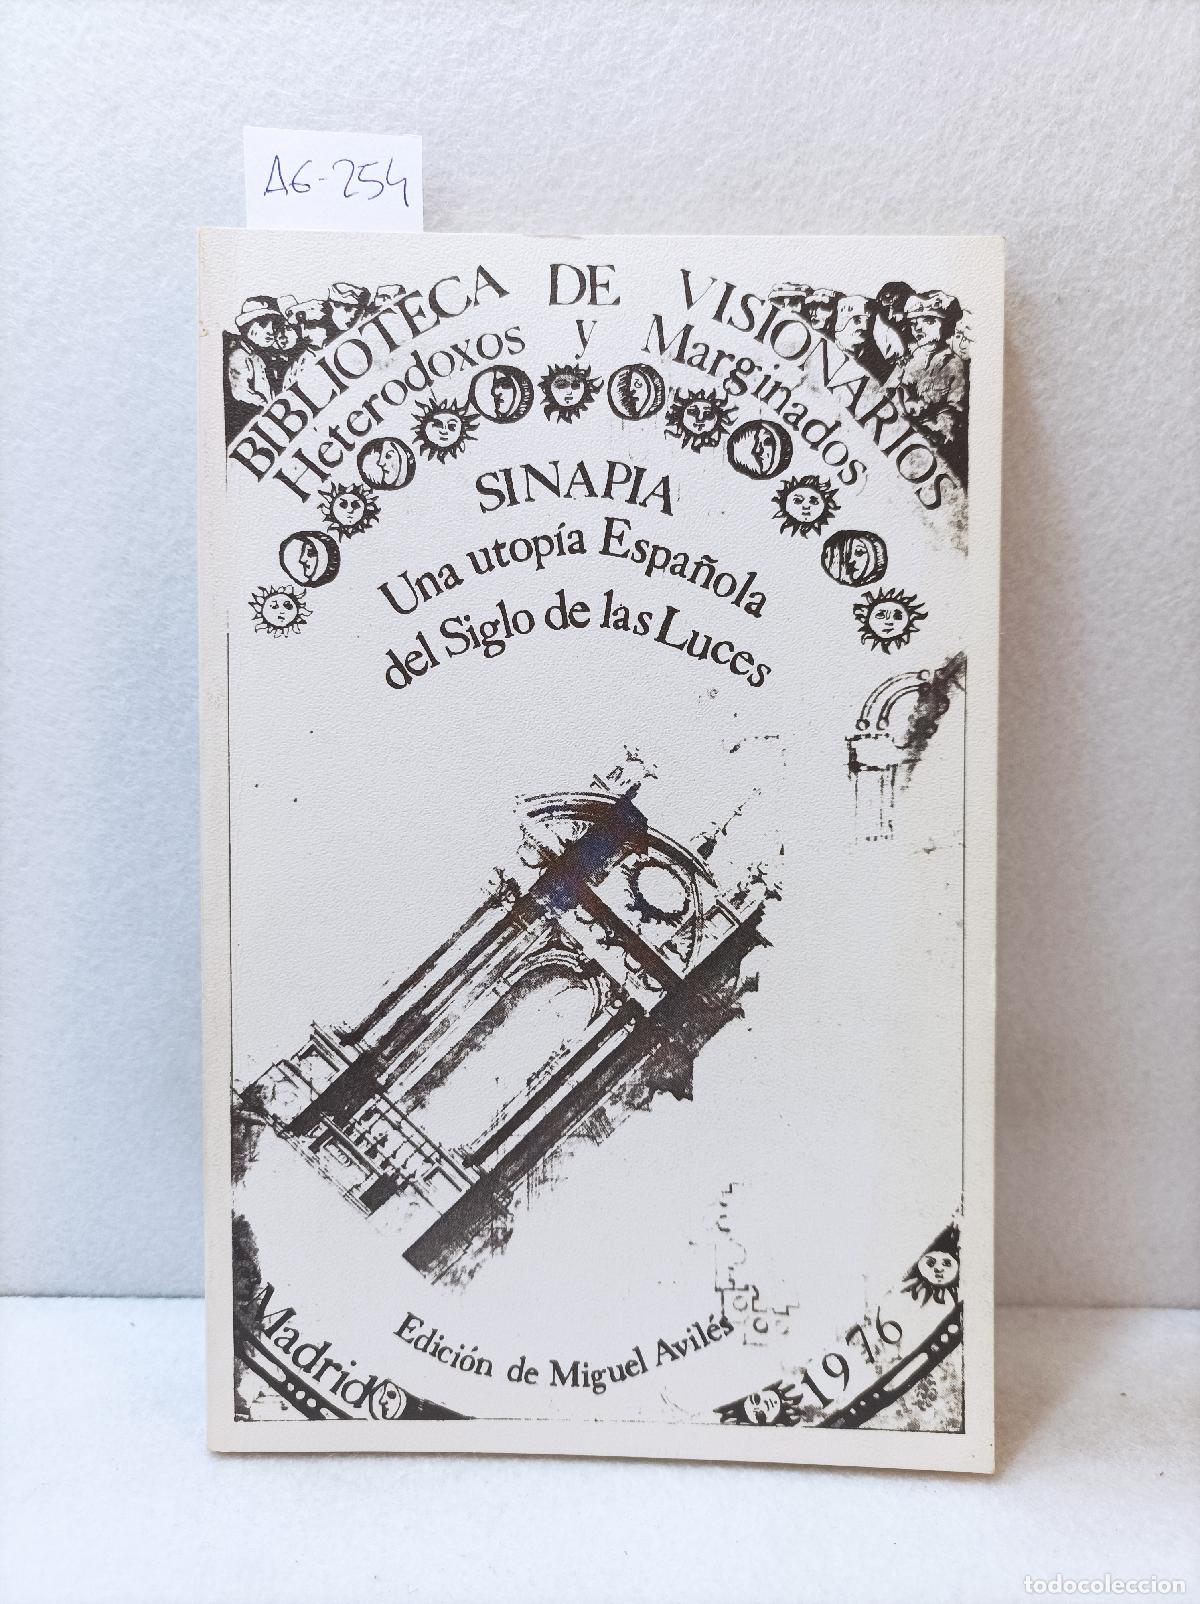 A6-254
BIBLIOTECA DE VISIONARIOS
Heterodoxos y Marginados
SINAPIA
Una utopía Española
del Siglo de las Luces
Edición de Miguel Avilés
Madrid
1976
todocoleccion